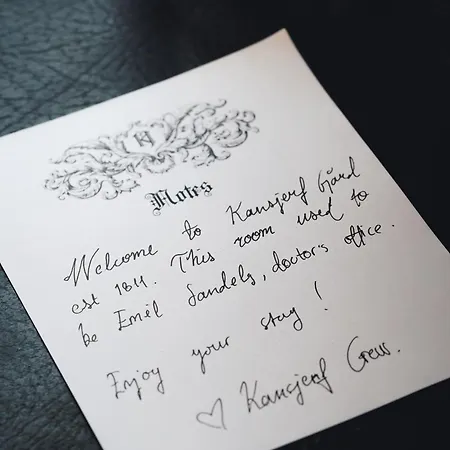 Notes
Welcome to Kansjerf Gård
est 1811. This room used to
be Emil Sandels, doctor's office.
Enjoy your stay!
♡ Kansjerf Crew.